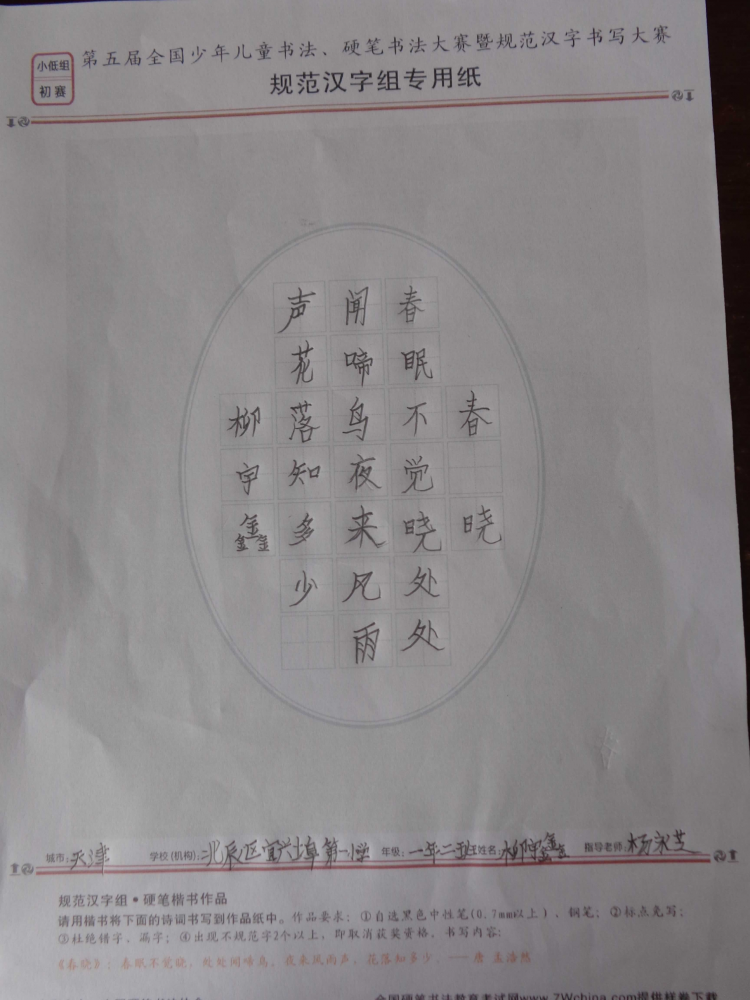 小低组
初赛
第五届全国少年儿童书法、硬笔书法大赛暨规范汉字书写大赛
规范汉字组专用纸
春晓
春眠不觉晓处处
闻啼鸟夜来风雨
声花落知多少
柳宇鑫
城市:天津 学校(机构):北辰区宜兴埠第一小学 年级:一年二班 姓名:柳宇鑫 指导老师:杨永芝
规范汉字组·硬笔楷书作品
请用楷书将下面的诗词书写到作品纸中。作品要求:①自选黑色中性笔(0.7mm以上),钢笔;②标点免写;
③杜绝错字、漏字;④出现不规范字2个以上,即取消获奖资格。书写内容:
《春晓》:春眠不觉晓,处处闻啼鸟。夜来风雨声,花落知多少。——唐 孟浩然
全国硬笔书法教育考试网www.7Wchina.com提供样卷下载